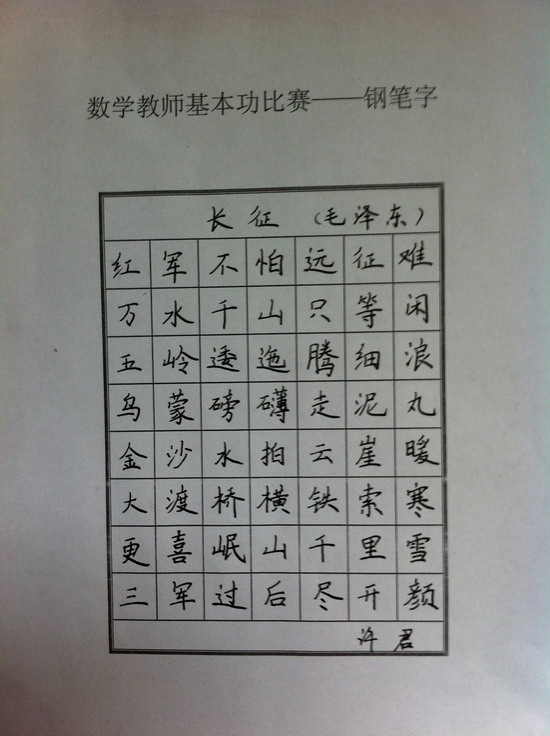 数学教师基本功比赛——钢笔字
长征 (毛泽东)
红军不怕远征难
万水千山只等闲
五岭逶迤腾细浪
乌蒙磅礴走泥丸
金沙水拍云崖暖
大渡桥横铁索寒
更喜岷山千里雪
三军过后尽开颜
许君